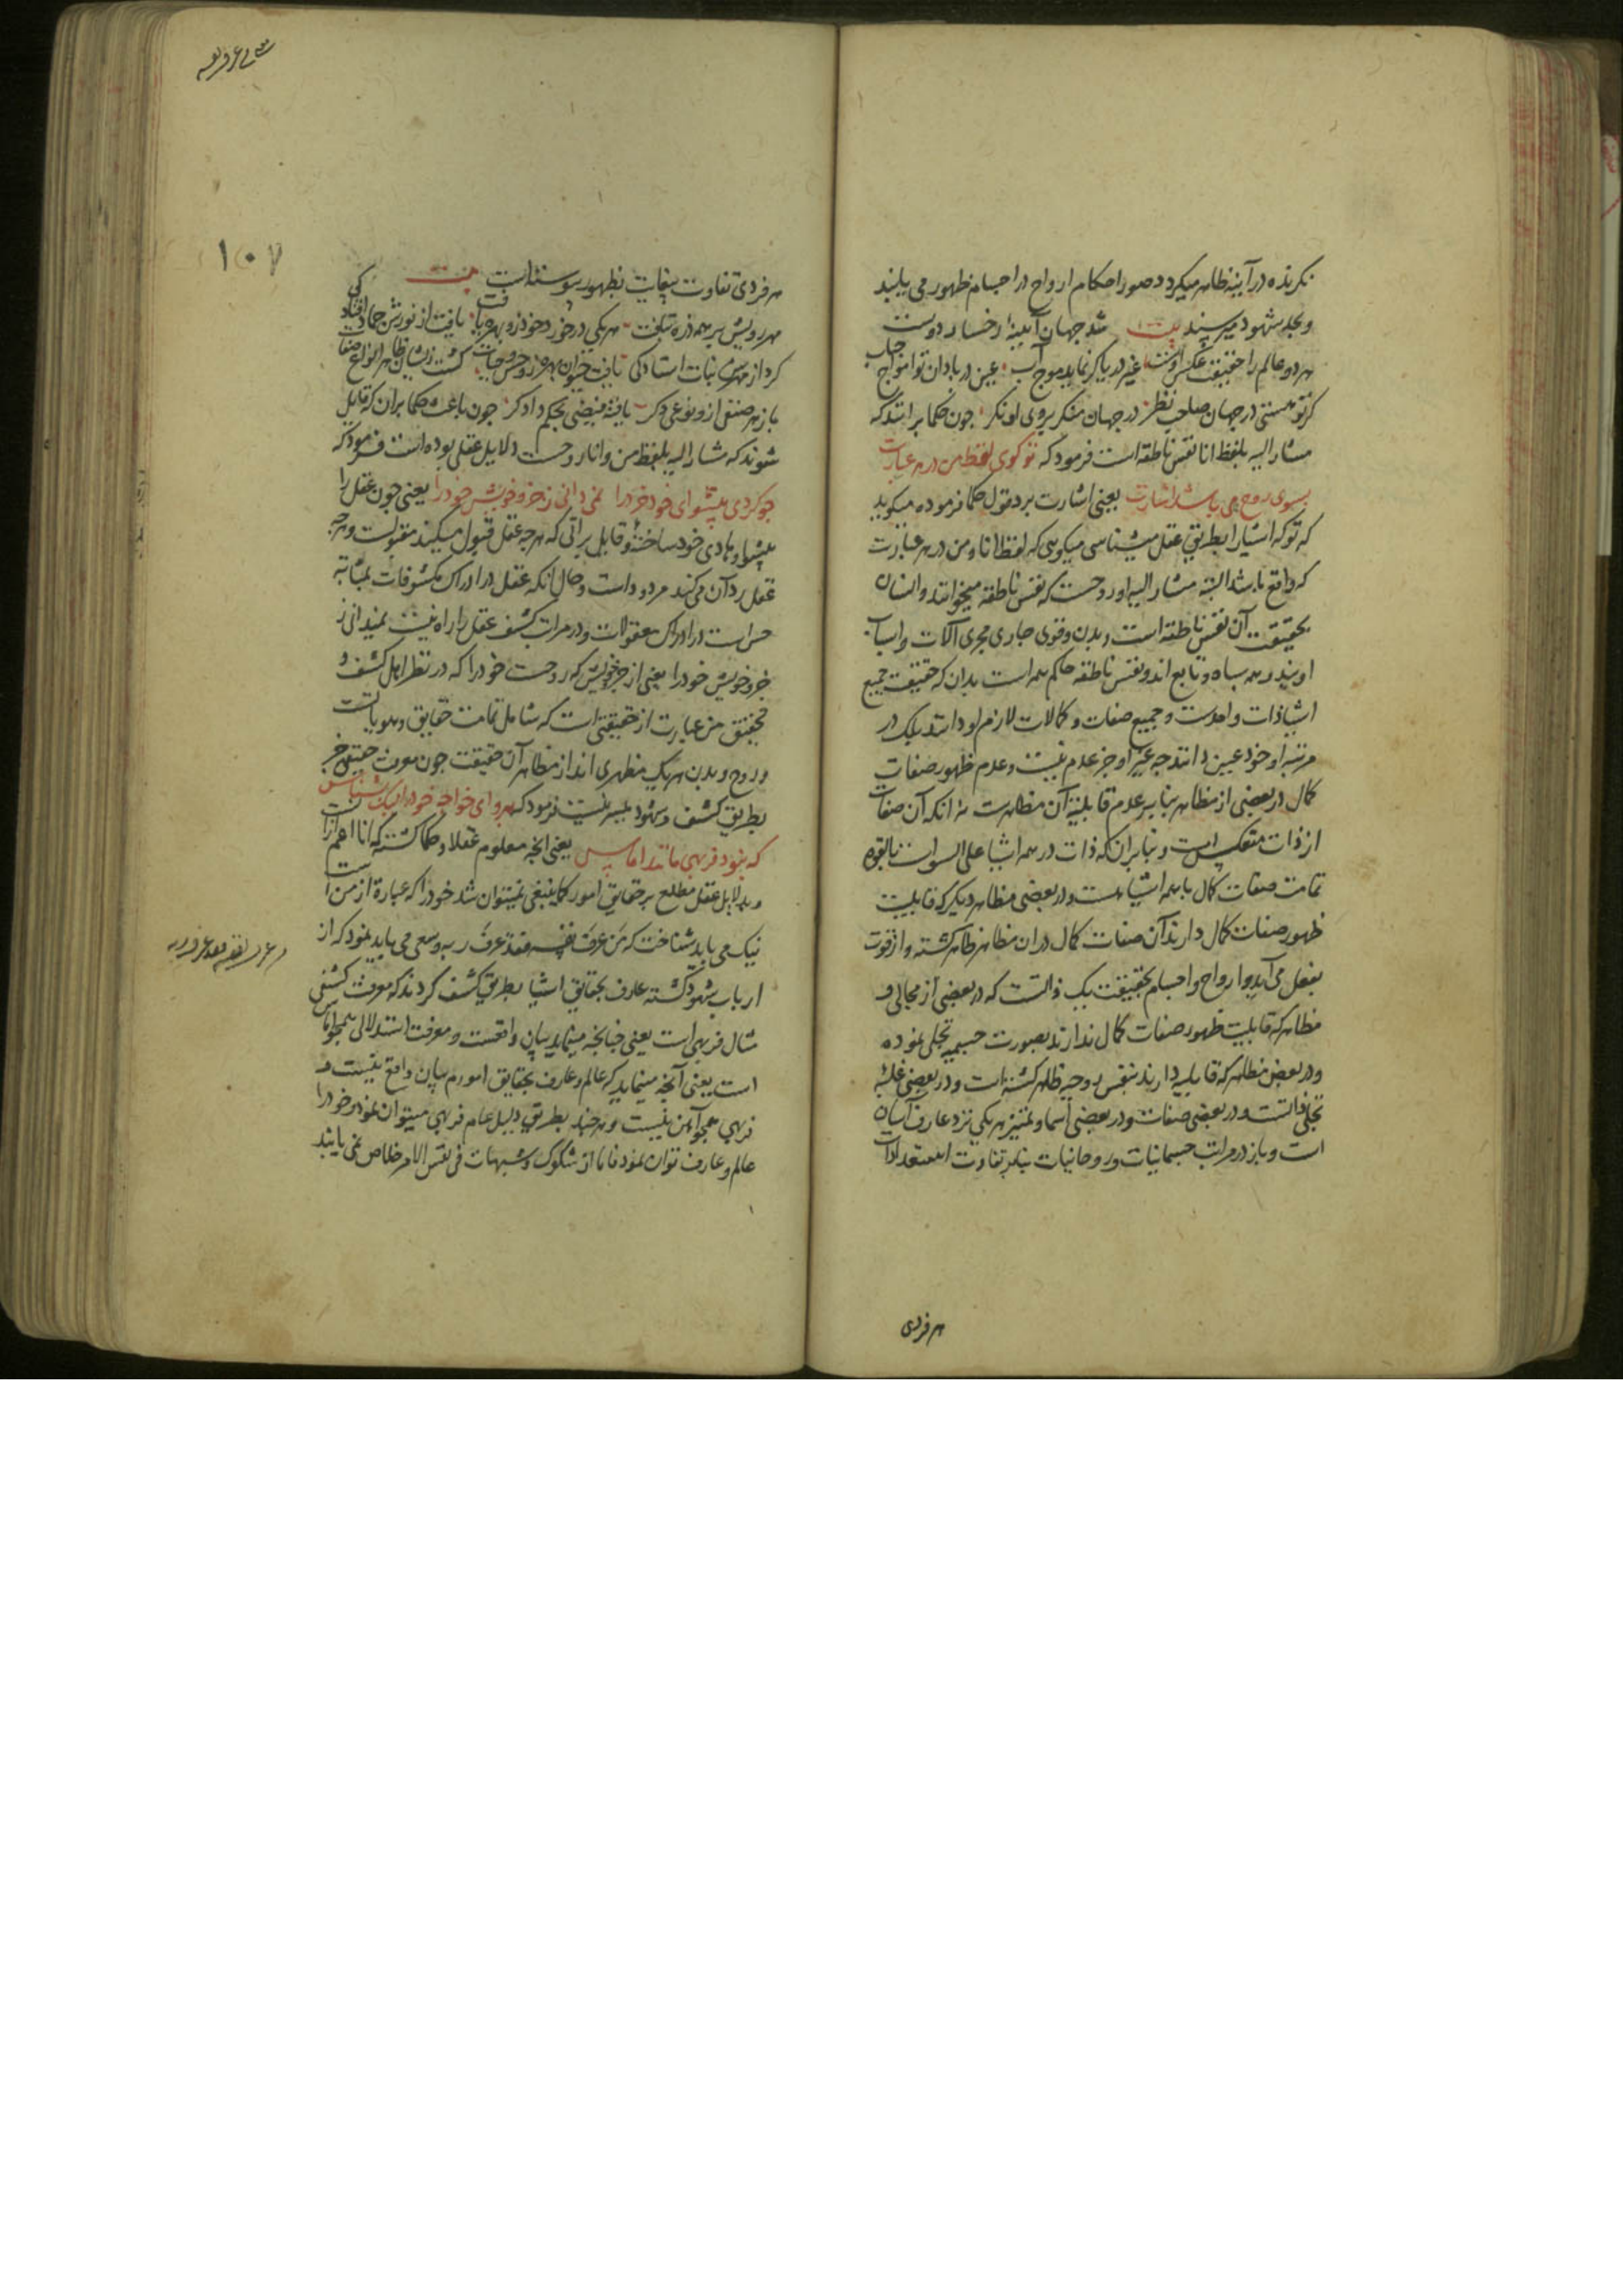 نکرنده در آینه ظاهر میکردد صور احکام ارواح در اجسام ظهور می یابند
و بحد شهود میرسند بیت شد جهان آیینهٔ رخسار دوست
هر دو عالم را حقیقت عکس اوست غیر دریا کر نماید موج آب عین دریا دان تو امواج حباب
کر تو هستی در جهان صاحب نظر در جهان منکر بروی او نکر جون حکما برانند که
مشار الیه بلفظ انا نفس ناطقه است فرمود که تو کویی لفظ من در هر عبارت
بسوی روح می باشد اشارت یعنی اشارت برد قول حکما فرموده میکوید
که تو که اشیا را بطریق عقل میشناسی میکویی که لفظ انا و من در هر عبارت
که واقع باشد البته مشار الیه او روحست که نفس ناطقه میخوانند و انسان
بحقیقت آن نفس ناطقه است و بدن و قوی جاری مجری آلات و اسباب
اویند و همه سپاه و تابع اند و نفس ناطقه حاکم همه است بدان که حقیقت جمیع
اشیا ذات واحدست و جمیع صفات و کمالات لازم او دانند بلک در
مرتبه او خود عین دانند جه غیر او جز عدم نیست و عدم ظهور صفات
کمال در بعضی از مظاهر بنابر عدم قابلیة آن مظاهرست نه آنکه آن صفات
از ذات منفکس است و بنابران که ذات در همه اشیا علی السواست بالقوه
تمامت صفات کمال با همه اشیا هست و در بعضی مظاهر دیکر که قابلیت
ظهور صفات کمال دارند آن صفات کمال در ان مظاهر ظاهر کشته و از قوت
بفعل می آید و ارواح و اجسام بحقیقت یک ذاتست که در بعضی از مجالی و
مظاهر که قابلیت ظهور صفات کمال ندارند بصورت جسمیه تجلی نموده
و در بعض مظاهر که قابلیه دارند بنفس روحیه ظاهر کشته است و در بعضی غلبهٔ
تجلی ذاتست و در بعضی صفات و در بعضی اسما و تمیز هر یکی نزد عارف آسان
است و باز در مراتب جسمانیات و روحانیات بنابر تفاوت استعدادات
هر فردی
هر فردی تفاوت بیغایت بظهور پیوسته است بیت
مهر رویش بر همه ذره بتافت هر یکی در خورد خود زو بهره یافت یافت از نورش جماد افتادکی
کرد از مهرش نبات استادکی یافت حیوان بهره از روح و حیات کشت ز انسان ظاهر انواع صفات
باز هر صنفی ازو نوعی دکر یافته فیضی بحکم دادکر جون باعث حکما بران که قایل
شوند که مشار الیه بلفظ من و انا روحست دلایل عقلی بوده است فرمود که
جو کردی پیشوای خود خرد را نمی دانی ز جزو خویش خود را یعنی جون عقل را
پیشوا و هادی خود ساختهٔ و قایل براتی که هر جه عقل قبول میکند مقبولست و هر جه
عقل رد آن می کند مردود است و حال آنکه عقل در ادراک مکشوفات بمثابه
حس است در ادراک معقولات و در مراتب کشف عقل را راه نیست نمیدانی ز
جزو خویش خود را یعنی از جزو خویش که روحست خود را که در نظر اهل کشف و
تحقیق من عبارت از حقیقتی است که شامل تمامت حقایق و هویاتست
و روح و بدن هر یک مظهری اند از مظاهر آن حقیقت جون معرفت حقیقی جز
بطریق کشف و شهود میسر نیست فرمود که برو ای خواجه خود را نیک بشناس
که نبود فربهی مانند اماس یعنی انجه معلوم عقلا و حکما کشته که انا اعم از انست
و بدلایل عقل مطلع بر حقایق امور کما ینبغی نمیتوان شد خود را که عبارة از من است
نیک می باید شناخت که من عرف نفسه فقد عرف ربه و سعی می باید نمود که از
ارباب شهود کشته عارف بحقایق اشیا بطریق کشف کردند که معرفت کشفی
مثال فربهی است یعنی جنانجه مینماید بیان واقعست و معرفت استدلالی همجو اماس
است یعنی آنجه مینماید که عالم و عارف بحقایق امورم بیان واقع نیست و
فربهی همجو آمس نیست و هر جند بطریق دلیل عام فربهی میتوان نمود و خود را
عالم و عارف توان نمود فاما از شکوک و شبهات فی نفس الامر خلاص نمی یابند
۱۰۷